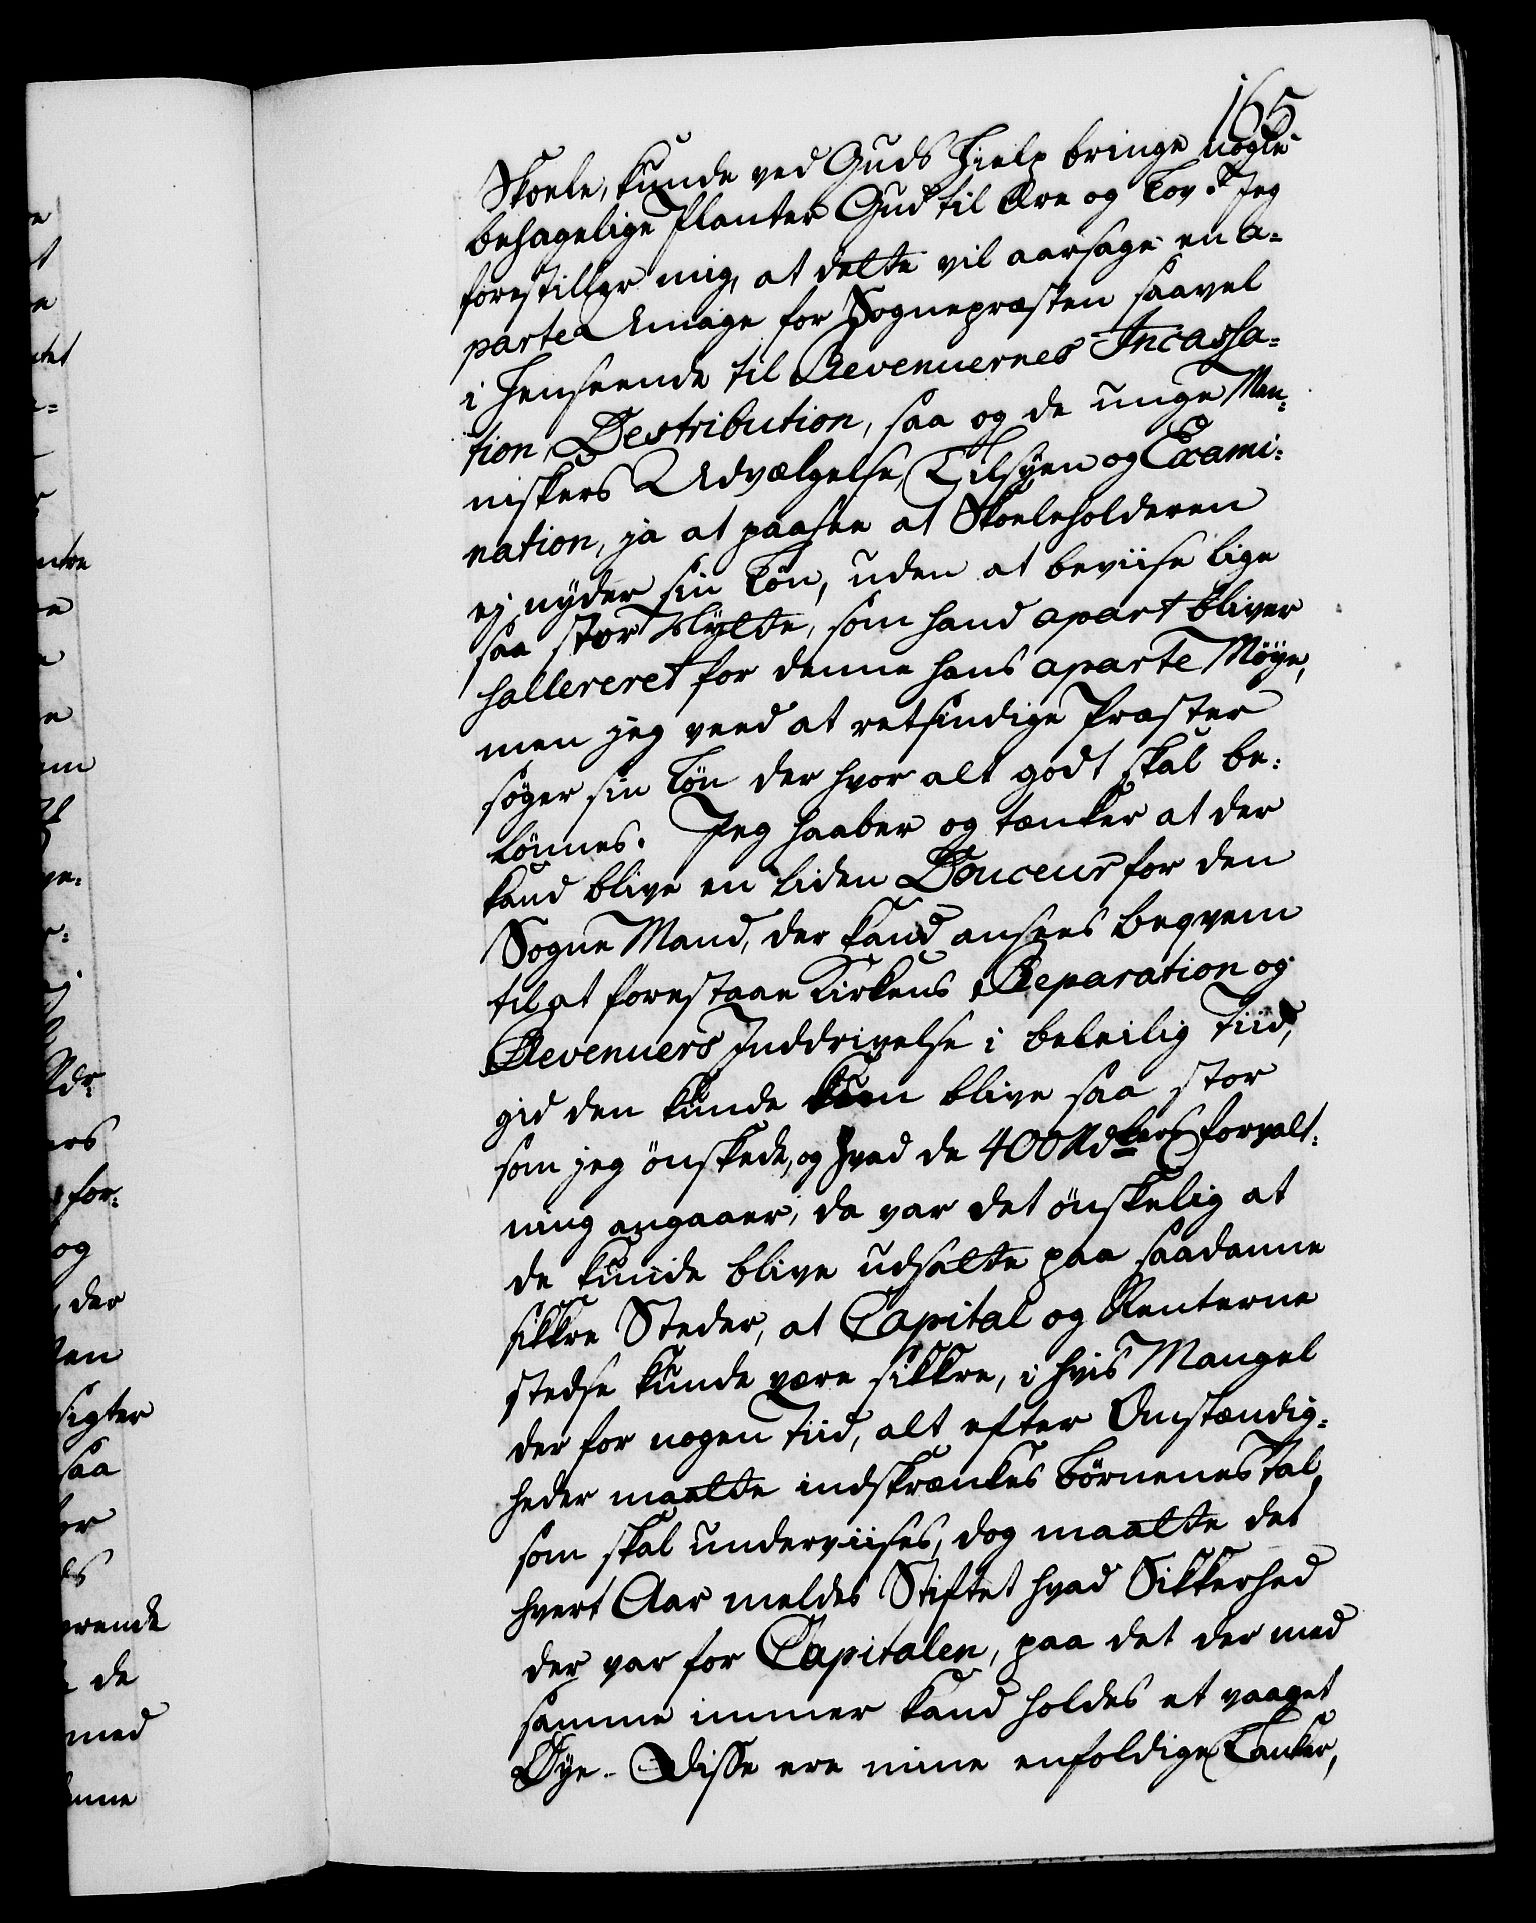 165
Skoele, kunde ved Guds Hielp bringe nogle
behagelige Planter Gud til Ære og Lov. Jeg
forestiller mig, at dette vil aarsage en a-
parte Umage for Sognepræsten saavel
i Henseende til Revenuernes Incassa-
tion, Destribution, saa og de unge Men-
niskers Udvælgelse, Tilsyen og Exami-
nation, ja at paasee at Skoeleholderen
ej nyder sin Løn, uden at beviise lige
saa stor Nytte, som hand apart bliver
sallereret for denne hans aparte Møye,
men jeg veed at retsindige Præster
søger sin Løn der hvor alt godt skal be-
lønnes. Jeg haaber og tænker at der
kand blive en liden Douceur for den
Sogne Mand, der kand ansees beqvem
til at forestaae Kirkens Reparation og
Revenuers Inddrivelse i beleilig Tiid,
gid den kunde kun blive saa stor
som jeg ønskede, og hvad de 400 Rdlrs Forvalt-
ning angaaer, da var det ønskelig at
de kunde blive udsatte paa saadanne
sikkre Steder, at Capital og Renterne
stedse kunde være sikkre, i hvis Mangel
der for nogen Tiid, alt efter Omstændig-
heder maatte indskrænkes Børnenes Tal,
som skal underviises, dog maatte det
hvert Aar meldes Stiftet hvad Sikkerhed
der var for Capitalen, paa det der med
samme immer kand holdes et vaaget
Øye. Disse ere mine enfoldige Tanker,